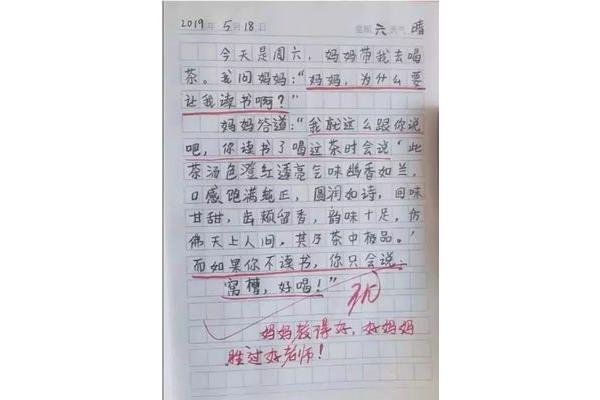 2019年5月18日 星期 六 天气 晴
今天是周六，妈妈带我去唱
茶。我问妈妈：“妈妈，为什么要
让我读书啊？”
妈妈答道：“我就这么跟你说
吧，你读书了唱这茶时会说‘此
茶汤色澄红透亮气味幽香如兰，
口感饱满纯正，圆润如诗，回味
甘甜，齿颊留香，韵味十足，仿
佛天上人间，真乃茶中极品。’
而如果你不读书，你只会说：
窝槽，好唱！”
妈妈教得好，好妈妈
胜过好老师！